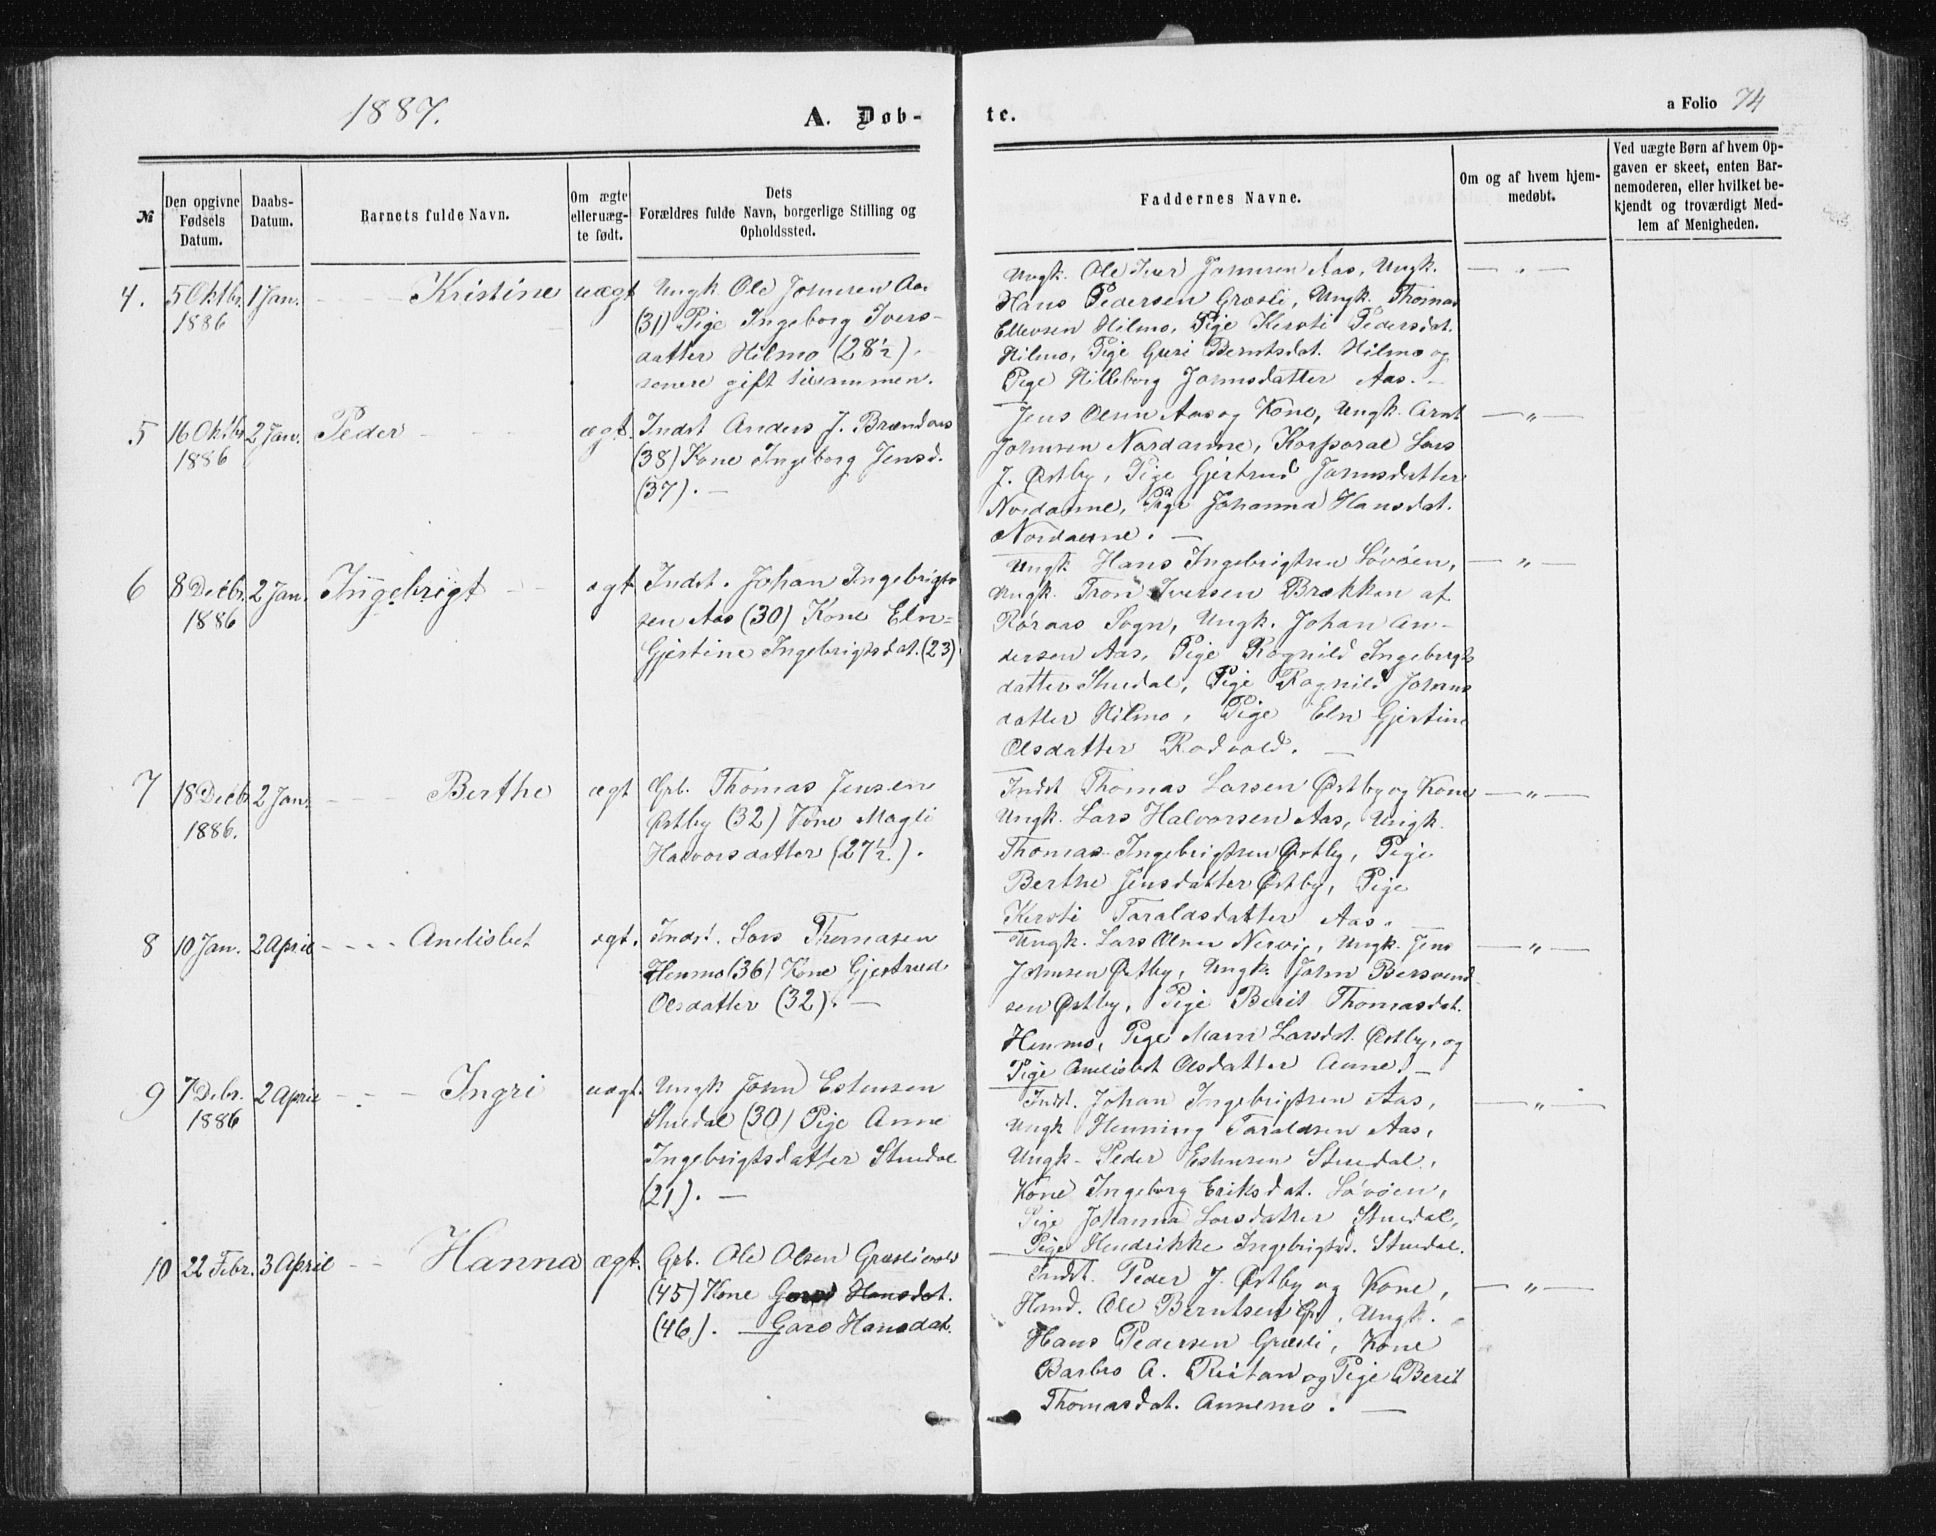 1887.
A. Døb-
te.
a Folio 74
№
Den opgivne
Fødsels
Datum.
Daabs-
Datum.
Barnets fulde Navn.
Om ægte
eller uæg-
te født.
Dets
Forældres fulde Navn, borgerlige Stilling og
Opholdssted.
Faddernes Navne.
Om og af hvem hjem-
medøbt.
Ved uægte Børn af hvem Op-
gaven er skeet, enten Bar-
nemoderen, eller hvilket be-
kjendt og troværdigt Med-
lem af Menigheden.
4. 5 Oktbr. 1 Jan. Kristine uægt
1886
Ungk. Ole Johnsen Aas
(31) Pige Ingeborg Ivers-
datter Hilmo (28½).
senere gift tilsammen.
Ungk. Ole Iver Johnsen Aas, Ungk.
Hans Pedersen Græsli, Ungk. Thomas
Ellevsen Hilmo, Pige Kersti Pedersdat.
Hilmo, Pige Guri Berntsdat. Hilmo og
Pige Hilleborg Johnsdatter Aas. —
— " —
5 16 Oktbr. 2 Jan. Peder ægt.
1886
Indst Anders J. Brændaas
(38) Kone Ingeborg Jensd.
(37). —
Jens Olsen Aas og Kone, Ungk. Arnt
Johnsen Nordaune, Korporal Lars
J. Østby, Pige Gjertrud Johnsdatter
Nordaune, Pige Johanna Hansdat.
Nordaune. —
— " —
6 8 Decbr. 2 Jan. Ingebrigt ægt
1886
Indst. Johan Ingebrigt-
sen Aas (30) Kone Eln=
Gjertine Ingebrigtsdat. (23)
Ungk. Hans Ingebrigtsen Løvøen,
Ungk. Tron Iversen Brækken af
Røraas Sogn, Ungk. Johan An-
dersen Aas, Pige Ragnild Ingebrigts
datter Stuedal, Pige Ragnild Johns
datter Hilmo, Pige Eln Gjertine
Olsdatter Rodvold. —
— " —
7 18 Decb. 2 Jan. Berthe ægt
1886.
Grb. Thomas Jensen
Østby (32) Kone Magli
Halvorsdatter (27½).
Indst Thomas Larsen Østby og Kone
Ungk. Lars Halvorsen Aas, Ungk.
Thomas Ingebrigtsen Østby, Pige
Berthe Jensdatter Østby, Pige
Kersti Taraldsdatter Aas. —
— " —
8 10 Jan. 2 April Anelisbet ægt.
Indst. Lars Thomasen
Henmo (36) Kone Gjertrud
Olsdatter (32). —
Ungk. Lars Olsen Nervig, Ungk. Jens
Johnsen Østby, Ungk. John Bersvend
sen Østby, Pige Berit Thomasdat.
Henmo, Pige Marit Larsdat. Østby, og
Pige Anelisbet Olsdatter Aune. —
— " —
9 7 Debr. 2 April Ingri uægt.
1886
Ungk John Estensen
Stuedal (30) Pige Anne
Ingebrigtsdatter Stuedal
(21). —
Indst. Johan Ingebrigtsen Aas,
Ungk Henning Taraldsen Aas,
Ungk. Peder Estensen Stuedal,
Kone Ingeborg Eriksdat. Løvøen,
Pige Johanna Larsdatter Stuedal,
Pige Hendrikke Ingebrigtsd. Stuedal.
— " —
10 22 Febr. 3 April Hanna ægt.
Grb. Ole Olsen Græslivold
(45) Kone Hansdat.
(46). — Goro Hansdat.
Indst. Peder J. Østby og Kone,
Hmd. Ole Berntsen, Ungk.
Hans Pedersen Græsli, Kone
Barbro A. Ristan og Pige Berit
Thomasdat. Aunemo. —
— " —